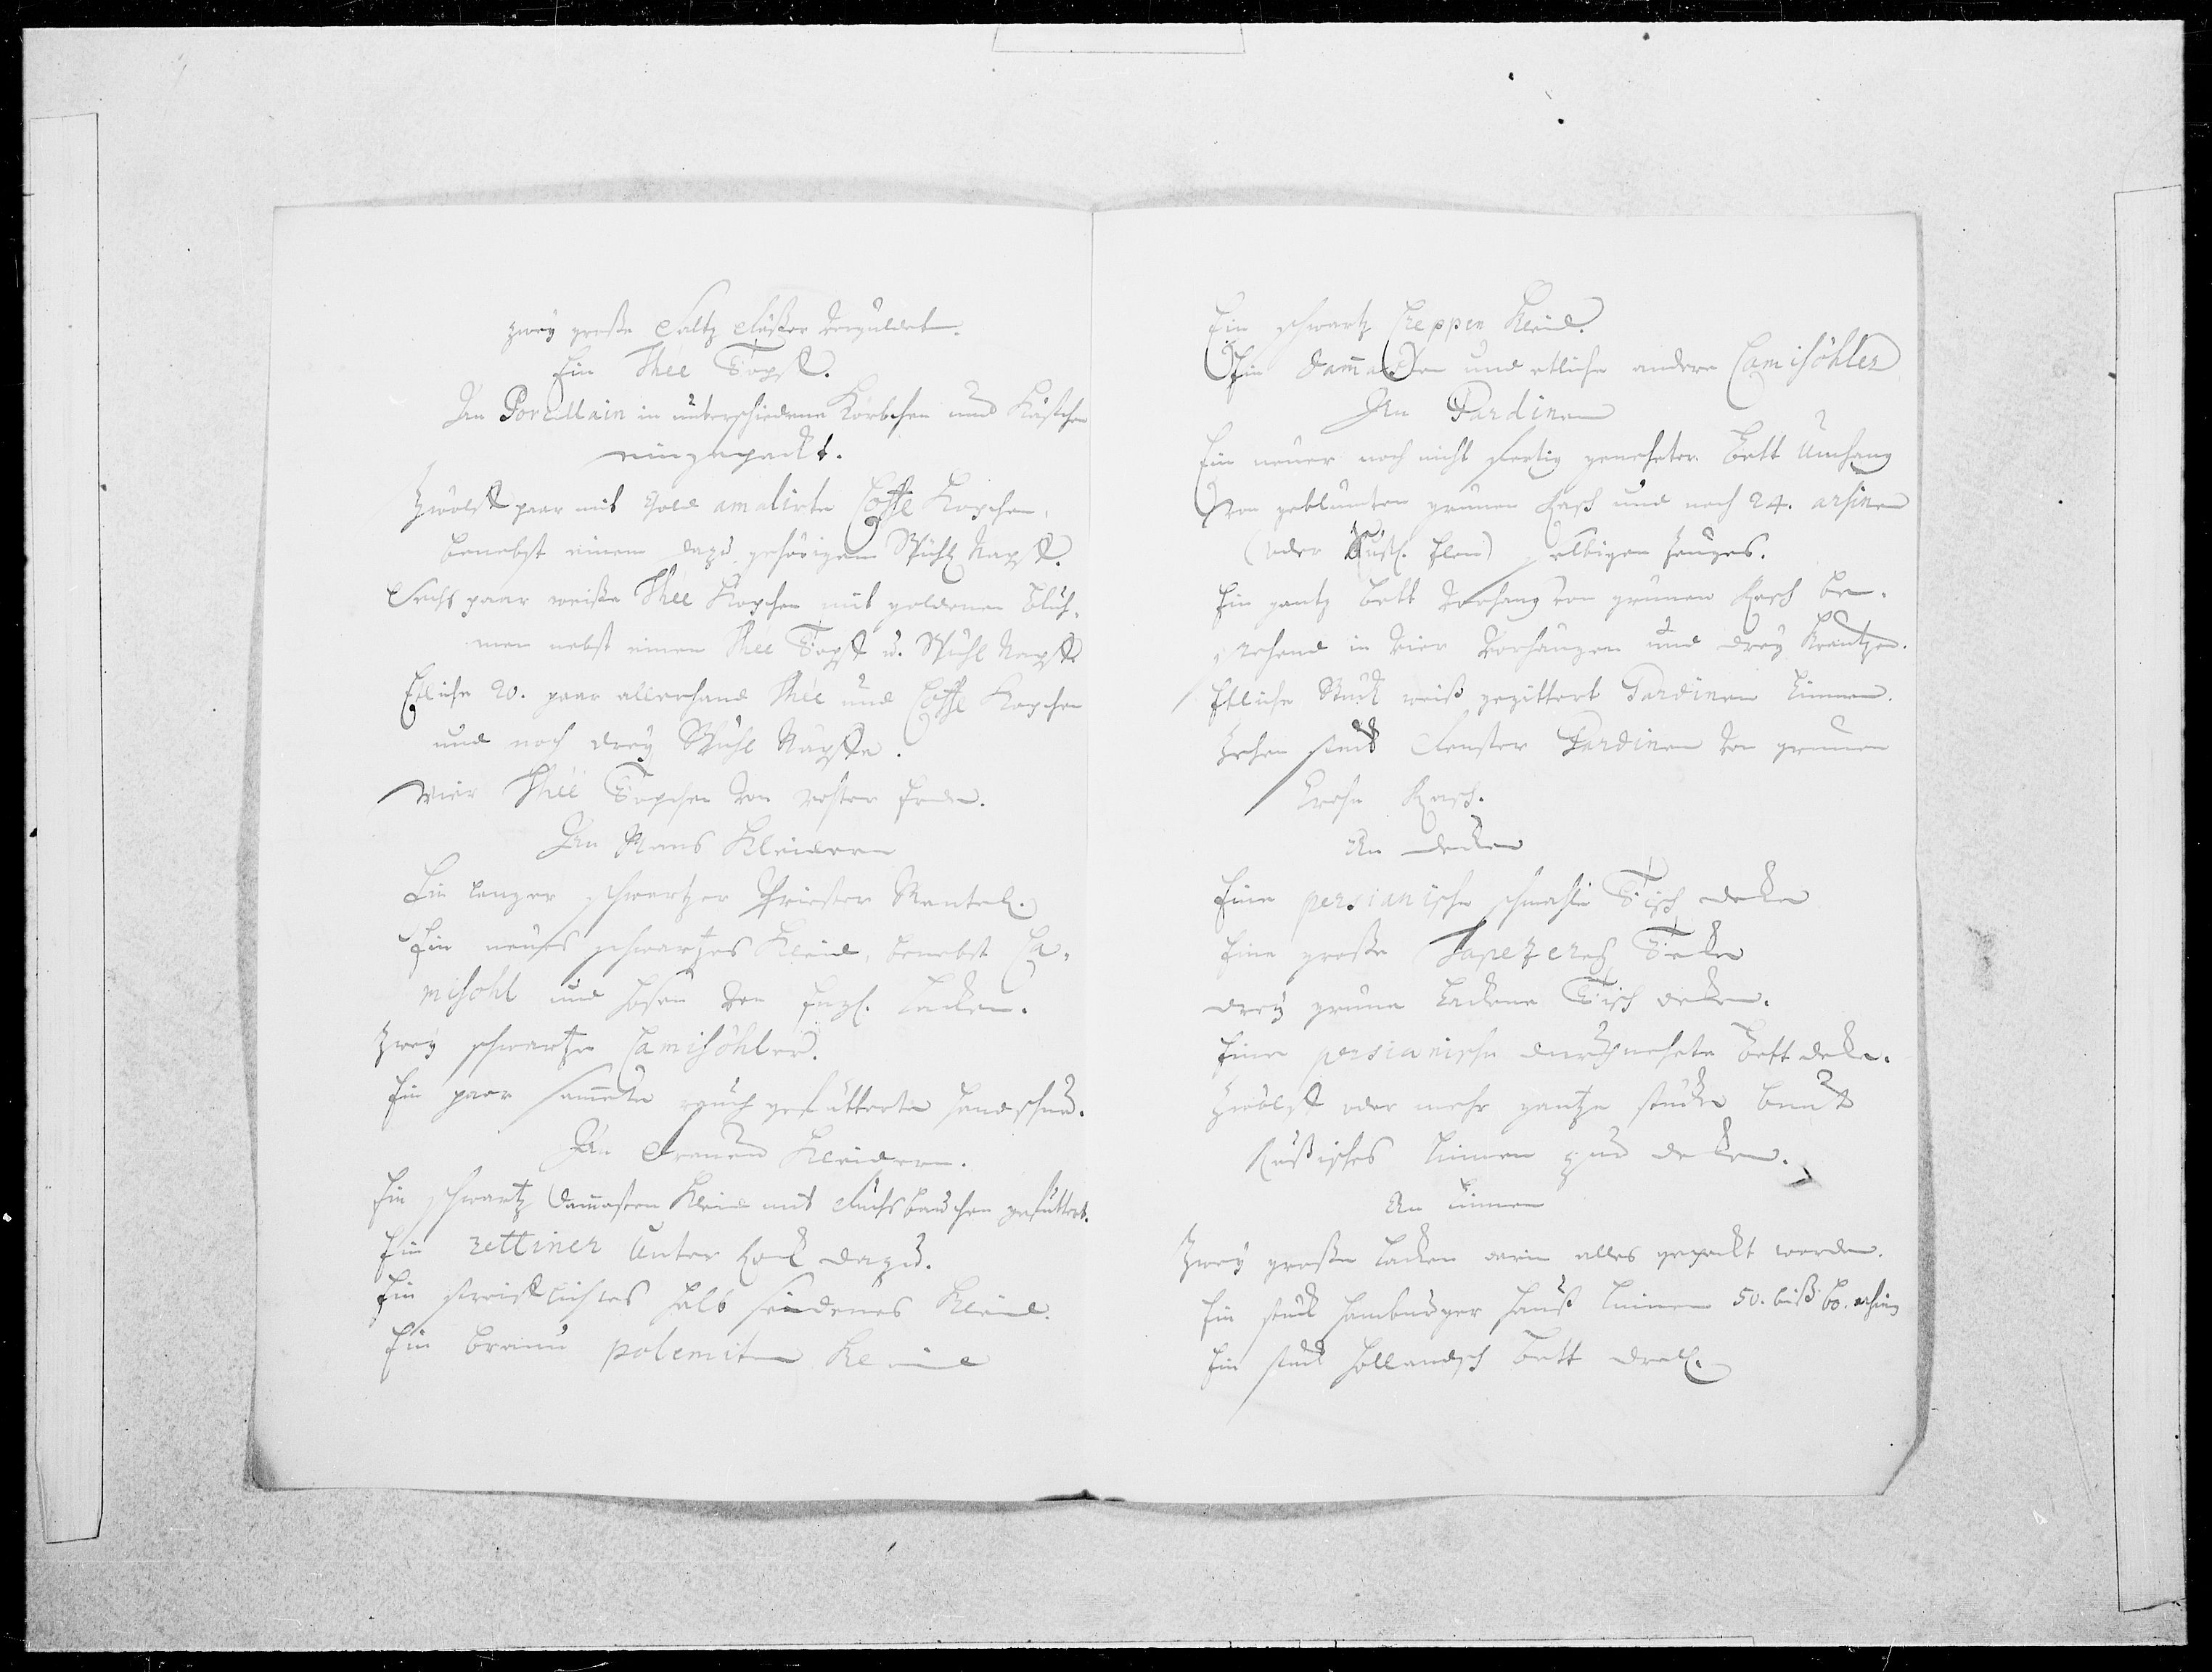 zwey große Saltz Fäßer verguldet.
Ein Thee Töpff.
An Porcellain in unterschiedene Körbchen und Kästchen
eingepackt.
Zwölff paar mit Gold amalirte Coffe Kopchen,
benebst einem dazu gehörigem Spühl Napff.
Sechs paar weiße Thee Kopchen mit goldenen Bluh-
men nebst einen Thee Topff u. Spühl Napff
Etliche 20. paar allerhand Thée und Coffe Kopchen
und noch drey Spühl Näpffe.
Vier Theé Töpchen von rohter Erden.
An Mans Kleidern
Ein langer schwartzer Priester Mantel.
Ein neues schwartzes Kleid, benebst Ca-
misohl und Hosen von Engl. Lacken.
Zwey schwartze Camisöhler.
Ein paar sam̄ete rauch gefütterte Handschu.
An Frauen Kleidern.
Ein schwartz Dam̄asten Kleid mit Fuchsbäuchen gefüttert.
Ein zettiner Unter Rock dazu.
Ein halb seidenes Kleid.
Ein braun polemiten Kleid
Ein schwartz Creppen Kleid.
Ein Dam̄asten und etliche andere Camisöhler
An Gardinen
Ein neuer noch nicht fertig geneheter Bett Umhang
Von geblümten grünen Rasch und noch 24. arsinen
(oder Russ. Elen) selbigen Zeuges.
Ein gantz Bett Vorhang von grünen Rasch be-
stehend in vier Vorhängen und drey Krantzen.
Etliche Stück weiß gegittert Gardinen Linnen.
Zehen stück Fenster Gardinen von grünen
Rasch.
An Decken
Eine persianische schmahle Tisch decke
Eine große Tapezerey Decke
drey grüne Lackene Tisch decken.
Eine persianische durchnehete Bett decke.
Zwölff oder mehr gantze stücke bunt
Rußisches Linnen zu decken.
An Linnen
Zwey große Lacken darin alles gepackt worden.
Ein stück Hamburger Hauß Linnen 50. biß 60. arsin
Ein stück Hollandsch Bett Drell.